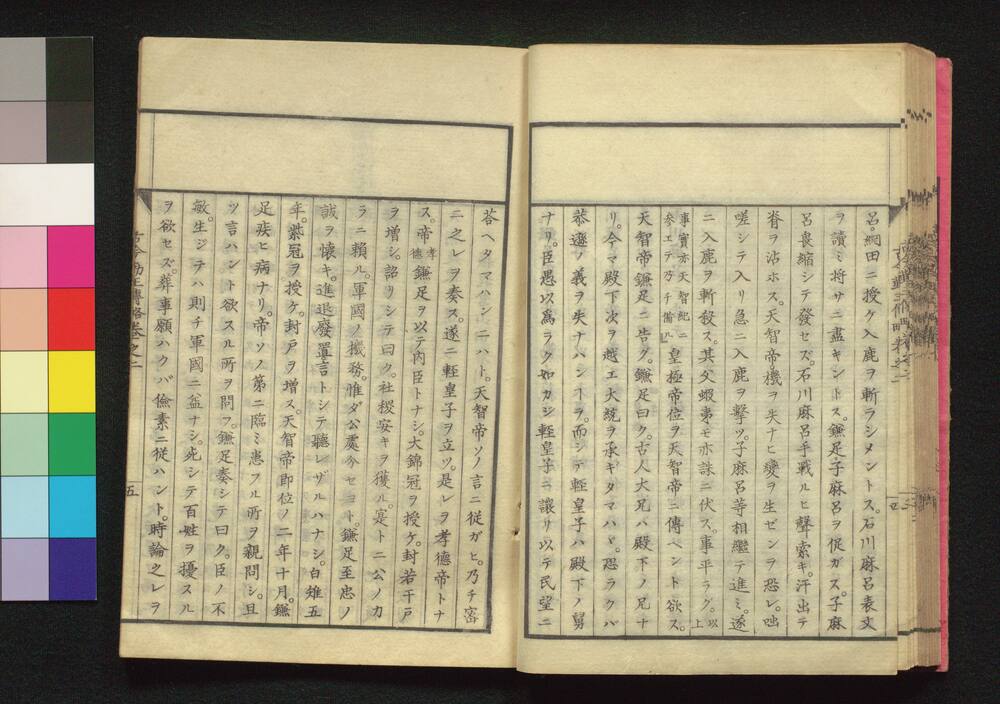 呂。網田ニ授ケ入鹿ヲ斬ラシメントス。石川麻呂表文
ヲ讀ミ將サニ盡キントス。鎌足子麻呂ヲ促ガス。子麻
呂畏縮シテ發セズ。石川麻呂手戰ルヒ聲索キ。汗出テ
脊ヲ沾ホス。天智帝機ヲ失ナヒ變ヲ生ゼンヲ恐レ。咄
嗟シテ入リ急ニ入鹿ヲ擊ツ。子麻呂等相繼テ進ミ。遂
ニ入鹿ヲ斬殺ス。其父蝦夷モ亦誅ニ伏ス。事平ラグ。以上
事實亦天智紀ニ參エテ乃チ備ル 皇極帝位ヲ天智帝ニ傳ヘント欲ス。
天智帝鎌足ニ告グ。鎌足曰ク。古人大兄ハ殿下ノ兄ナ
リ。今マ殿下次ヲ越エ大統ヲ承ギタマハヾ。恐ラクハ
恭遜ノ義ヲ失ナハン耳ラ。而シテ輕皇子ハ殿下ノ舅
ナリ。臣愚以爲ラク如カジ輕皇子ニ讓リ以テ民望ニ
荅ヘタマハンニハト。天智帝ソノ言ニ從ガヒ。乃チ密
ニ之レヲ奏ス。遂ニ輕皇子ヲ立ツ。是レヲ孝德帝トナ
ス。帝孝德鎌足ヲ以テ内臣トナシ。大錦冠ヲ授ケ。封若干戸
ヲ增シ。詔リシテ曰ク。社稷安キヲ獲ル。寔トニ公ノ力
ラニ賴ル。軍國ノ機務。惟ダ公處分セヨト。鎌足至忠ノ
誠ヲ懷キ。進退廢置言トシテ聽レザルハナシ。白雉五
年。紫冠ヲ授ケ。封戸ヲ增ス。天智帝即位ノ二年十月。鎌
足疾ヒ病ナリ。帝ソノ第ニ臨ミ患フル所ヲ親問シ。且
ツ言ハント欲スル所ヲ問フ。鎌足奏シテ曰ク。臣ノ不
敏。生ジテハ則チ軍國ニ益ナシ。死シテ百姓ヲ擾スル
ヲ欲セズ。葬事願ハクバ儉素ニ從ハント。時論之レヲ
五